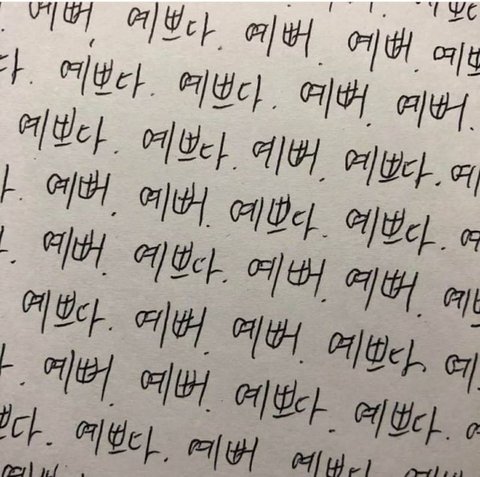 예뻐. 예쁘다. 예뻐. 예뻐.
다. 예쁘다. 예쁘다. 예뻐. 예뻐.
예쁘다. 예쁘다. 예뻐. 예쁘다. 예
예뻐. 예뻐. 예쁘다. 예쁘다.
예뻐. 예쁘다. 예뻐. 예뻐.
예쁘다. 예뻐. 예뻐. 예쁘다. 예
예뻐. 예뻐. 예쁘다. 예쁘다.
쁘다. 예쁘다. 예뻐 예쁘다.
예뻐. 예쁘다